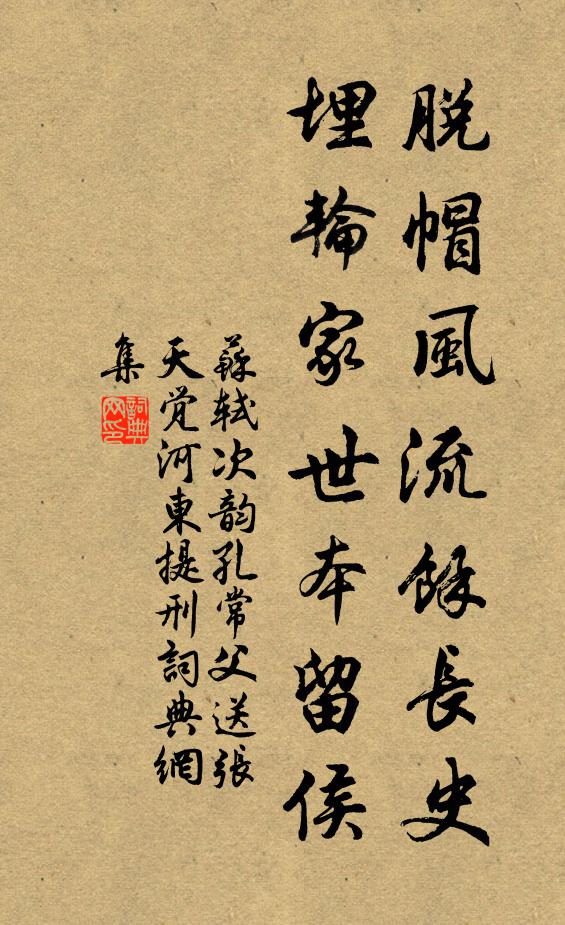 脫帽風流餘長史
埋輪家世本留侯
蘇軾次韵孔常父送張
天觉河東提刑詞典網
集
詞典
网印